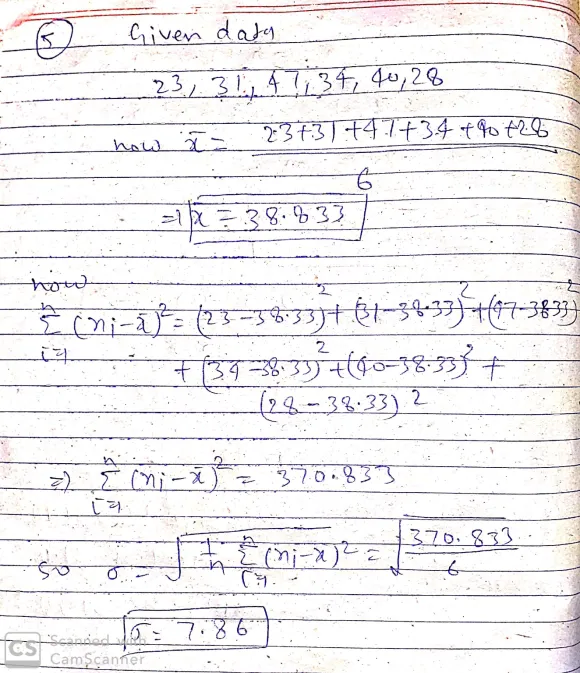 5 Given data
23, 31, 47, 34, 40, 28
now x̄ = 23+31+47+34+40+28
6
=) x̄ = 38.833
now
n
Σ (xi-x̄)² = (23-38.33)² + (31-38.33)² + (47-38.33)²
i=1
+ (34-38.33)² + (40-38.33)² +
(28-38.33)²
n
=) Σ (xi-x̄)² = 370.833
i=1
so σ = √ 1/n n Σ i=1 (xi-x)² = √ 370.833 / 6
σ = 7.86
CS Scanned with
CamScanner